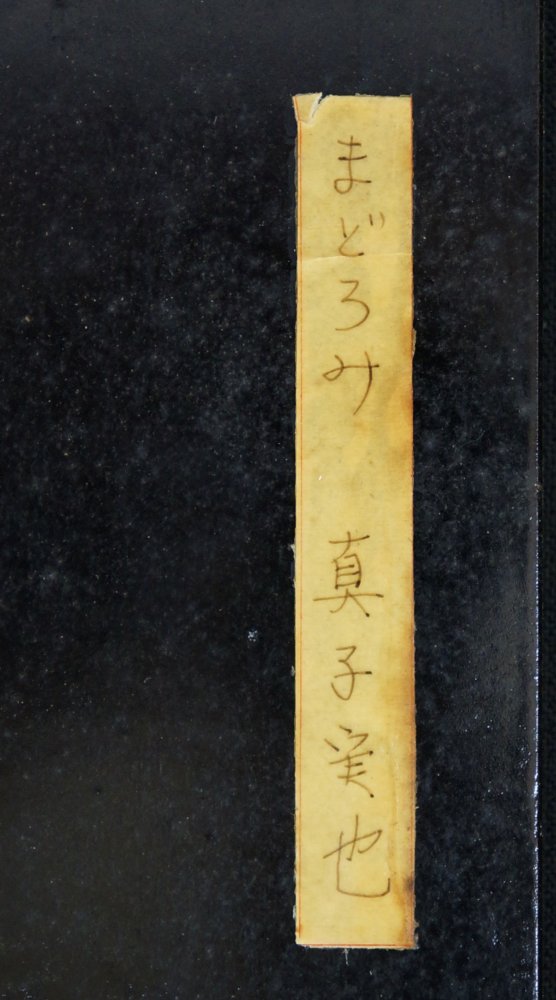 まどろみ 真子実也